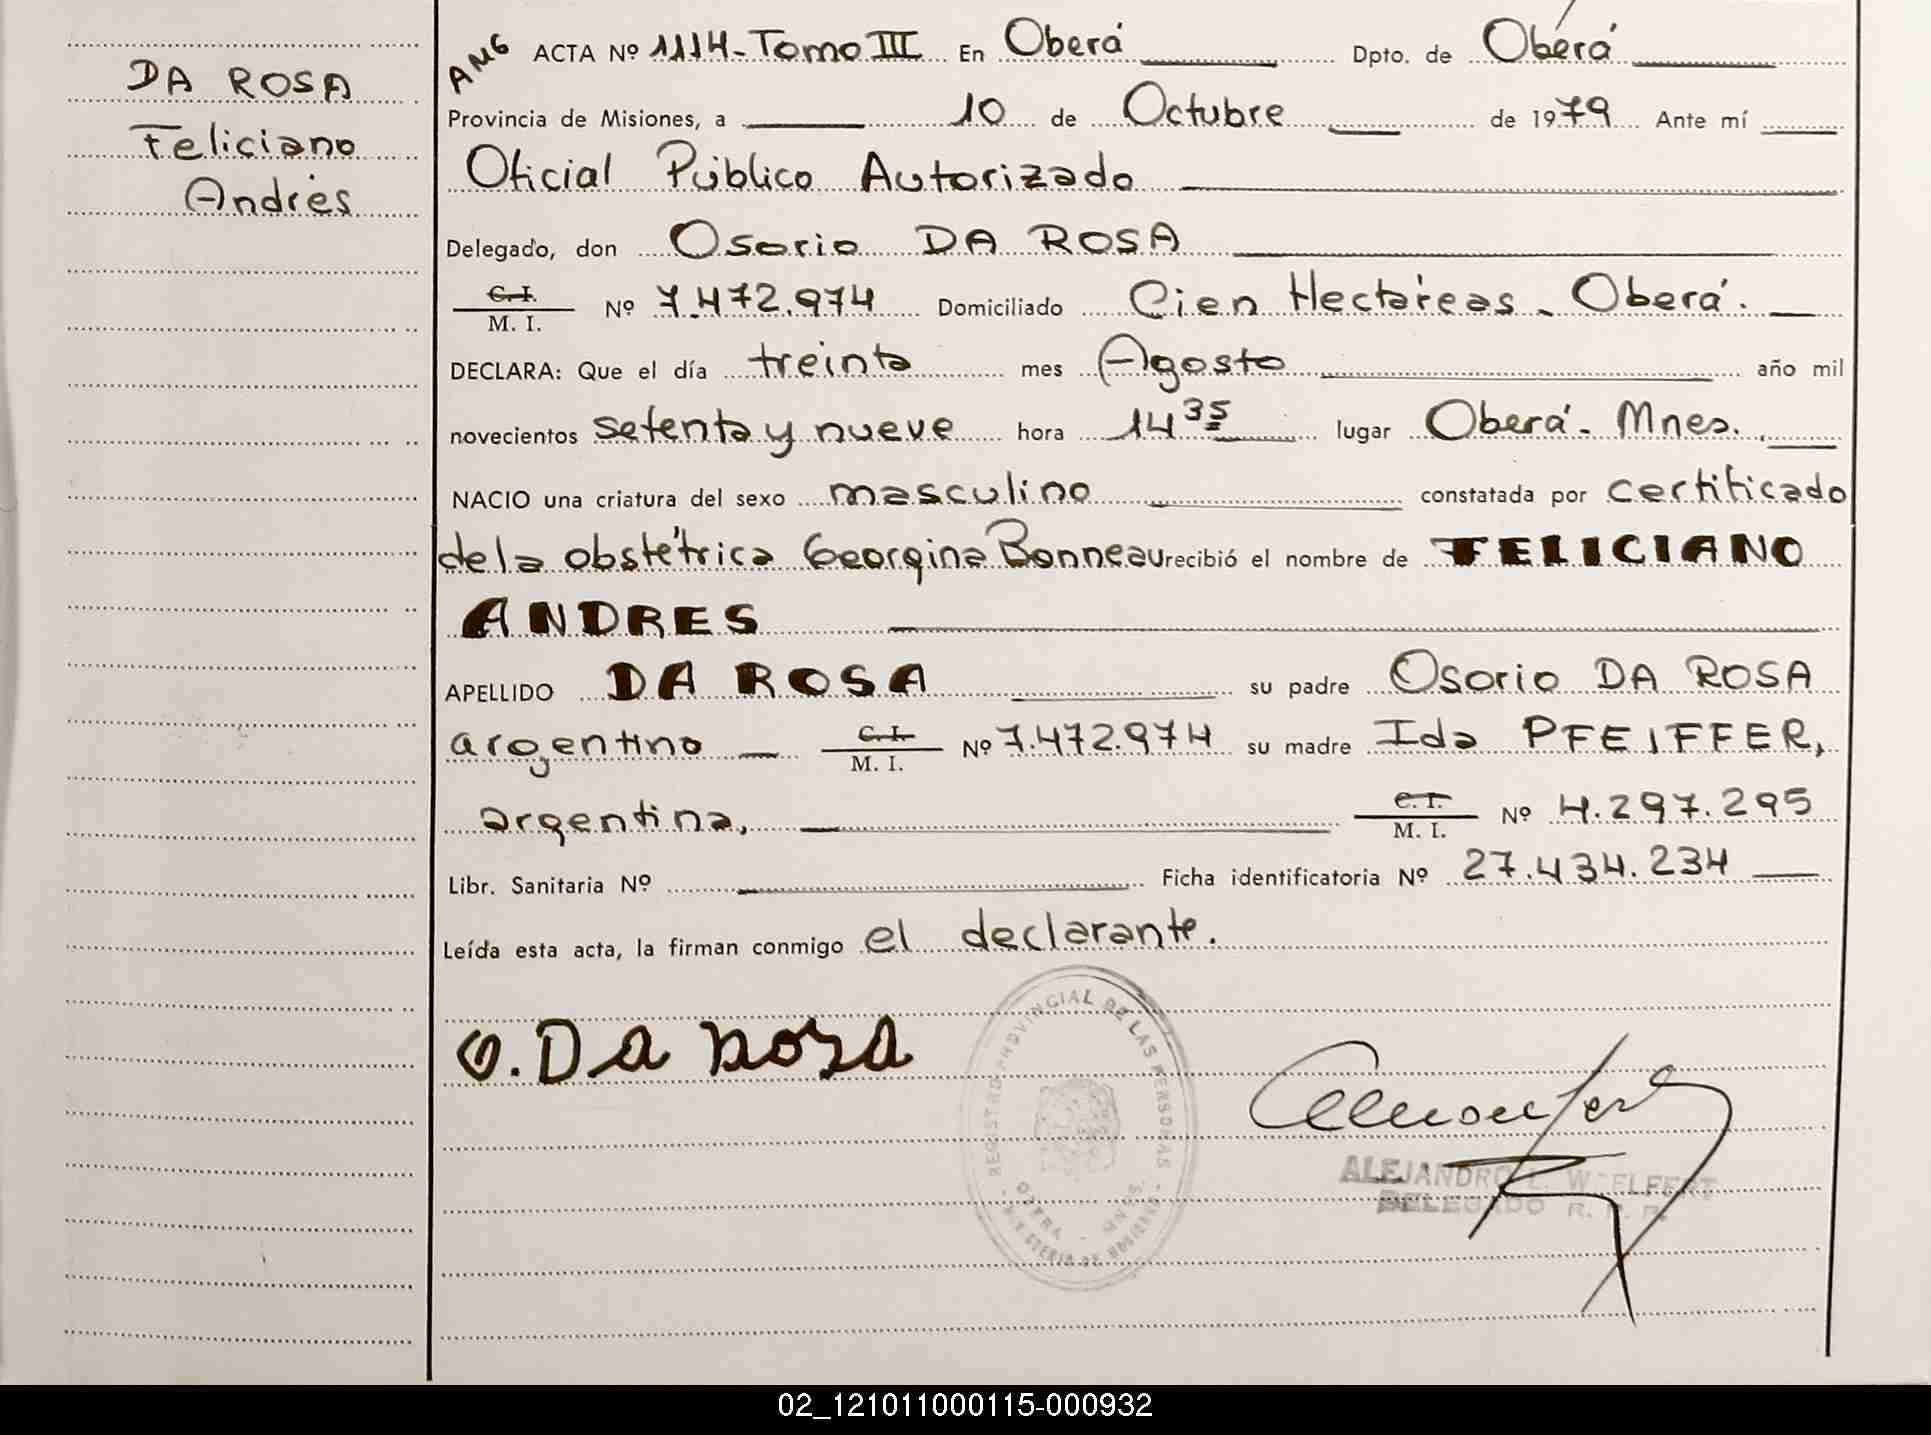 DA ROSA
Feliciano
Andrés
AMG ACTA Nº 1114-Tomo III En Oberá Dpto. de Oberá
Provincia de Misiones, a 10 de Octubre de 1979 Ante mí
Oficial Público Autorizado
Delegado, don Osorio DA ROSA
C.I. M. I. Nº 7.472.974 Domiciliado Cien Hectáreas - Oberá.
DECLARA: Que el día treinta mes Agosto año mil
novecientos setenta y nueve hora 14 35 lugar Oberá - Mnes.
NACIO una criatura del sexo masculino constatada por certificado
de la obstétrica Georgina Bonneau recibió el nombre de FELICIANO
ANDRES
APELLIDO DA ROSA su padre Osorio DA ROSA
argentino C.I. M. I. Nº 7.472.974 su madre Ida PFEIFFER,
argentina, C.I. M. I. Nº 4.297.295
Libr. Sanitaria Nº Ficha identificatoria Nº 27.434.234
Leída esta acta, la firman conmigo el declarante.
O. Da Rosa
REGISTRO PROVINCIAL DE LAS PERSONAS
OBERA - MNES.
MINISTERIO DE GOBIERNO
ALEJANDRO E. WOELFERT
DELEGADO R. P. P.
02_121011000115-000932